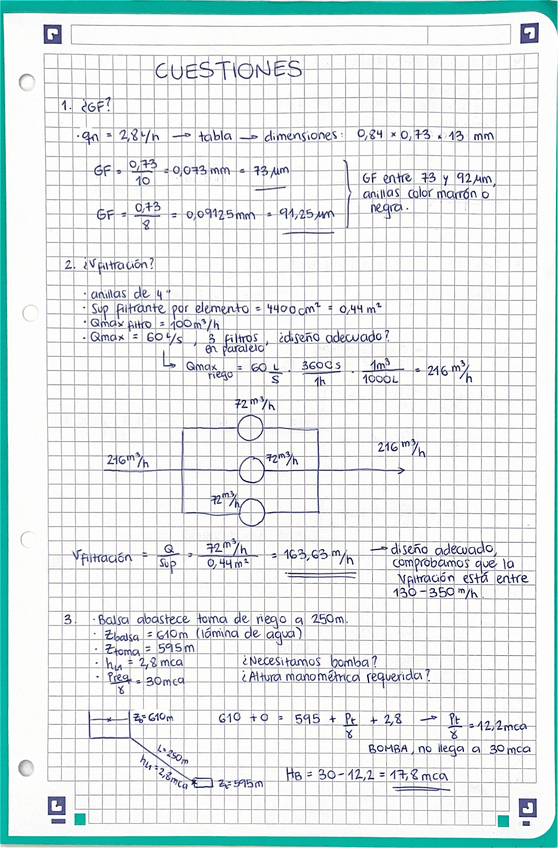 CUESTIONES
1. ¿GF?
· qn = 2,8 L/h → tabla → dimensiones: 0,84 x 0,73 x 13 mm
GF = 0,73/10 = 0,073 mm = 73 µm
GF entre 73 y 92 µm, anillas color marrón o negra.
GF = 0,73/8 = 0,09125 mm = 91,25 µm
2. ¿Vfiltración?
· anillas de 4"
· Sup filtrante por elemento = 4400 cm² = 0,44 m²
· Qmax filtro = 100 m³/h
· Qmax = 60 L/s, 3 filtros en paralelo, ¿diseño adecuado?
↳ Qmax riego = 60 L/s · 3600s/1h · 1m³/1000L = 216 m³/h
72 m³/h
216 m³/h
72 m³/h
216 m³/h
72 m³/h
Vfiltración = Q/Sup = 72 m³/h / 0,44 m² = 163,63 m/h
→ diseño adecuado,
comprobamos que la
Vfiltración está entre
130-350 m/h.
3. · Balsa abastece toma de riego a 250m.
· Zbalsa = 610m (lámina de agua)
· Ztoma = 595m
· hu = 2,8 mca ¿Necesitamos bomba?
· Preq/γ = 30 mca ¿Altura manométrica requerida?
Zb = 610m
610 + 0 = 595 + Pt/γ + 2,8 → Pt/γ = 12,2 mca
BOMBA, no llega a 30 mca
L = 250m
hu = 2,8 mca
Zt = 595m
HB = 30 - 12,2 = 17,8 mca